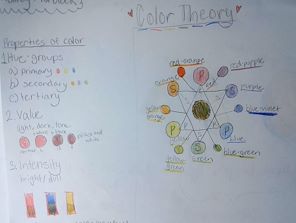 Color Theory
Properties of color
1. Hue-groups
a) primary
b) secondary
c) tertiary
2. Value
light, dark, tone
3. Intensity
bright/dull
red-orange
red-purple
orange
P
red
S
S
purple
yellow
orange
blue-violet
P
P
yellow
S
blue
yellow
green
green
blue-green